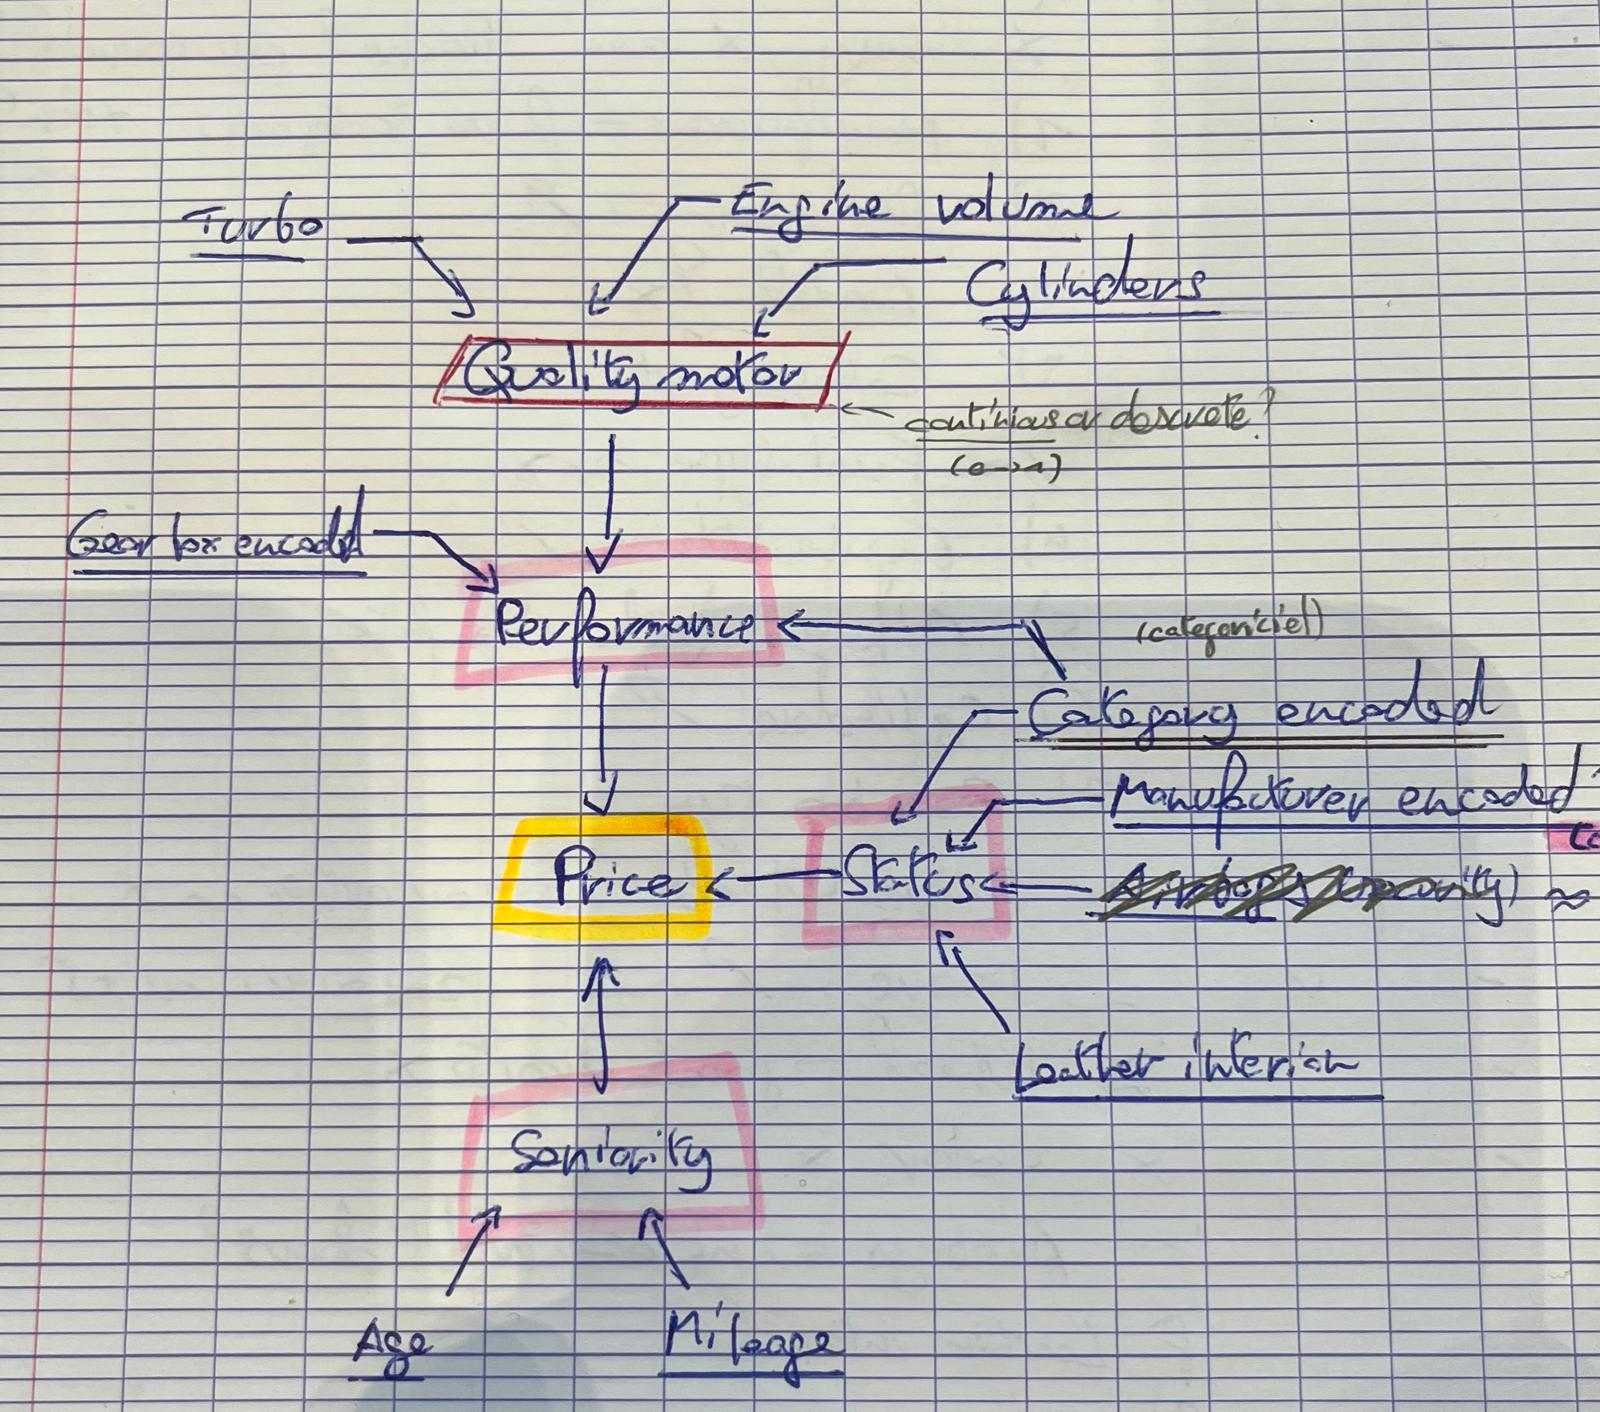 Turbo
Engine volume
Cylinders
Quality motor
continious or descrete?
(0→1)
Gear box encoded
Performance
(categoriciel)
Category encoded
Manufacturer encoded
Price
Status
≈
Leather interior
Seniority
Age
Mileage